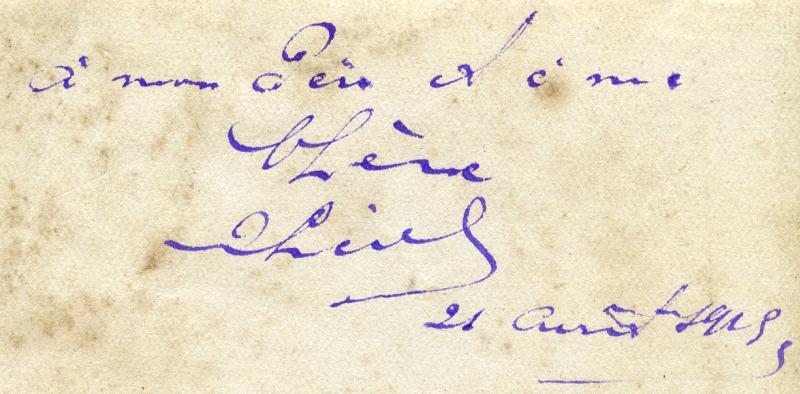 à mon Père et à ma
Mère
21 Août 1915